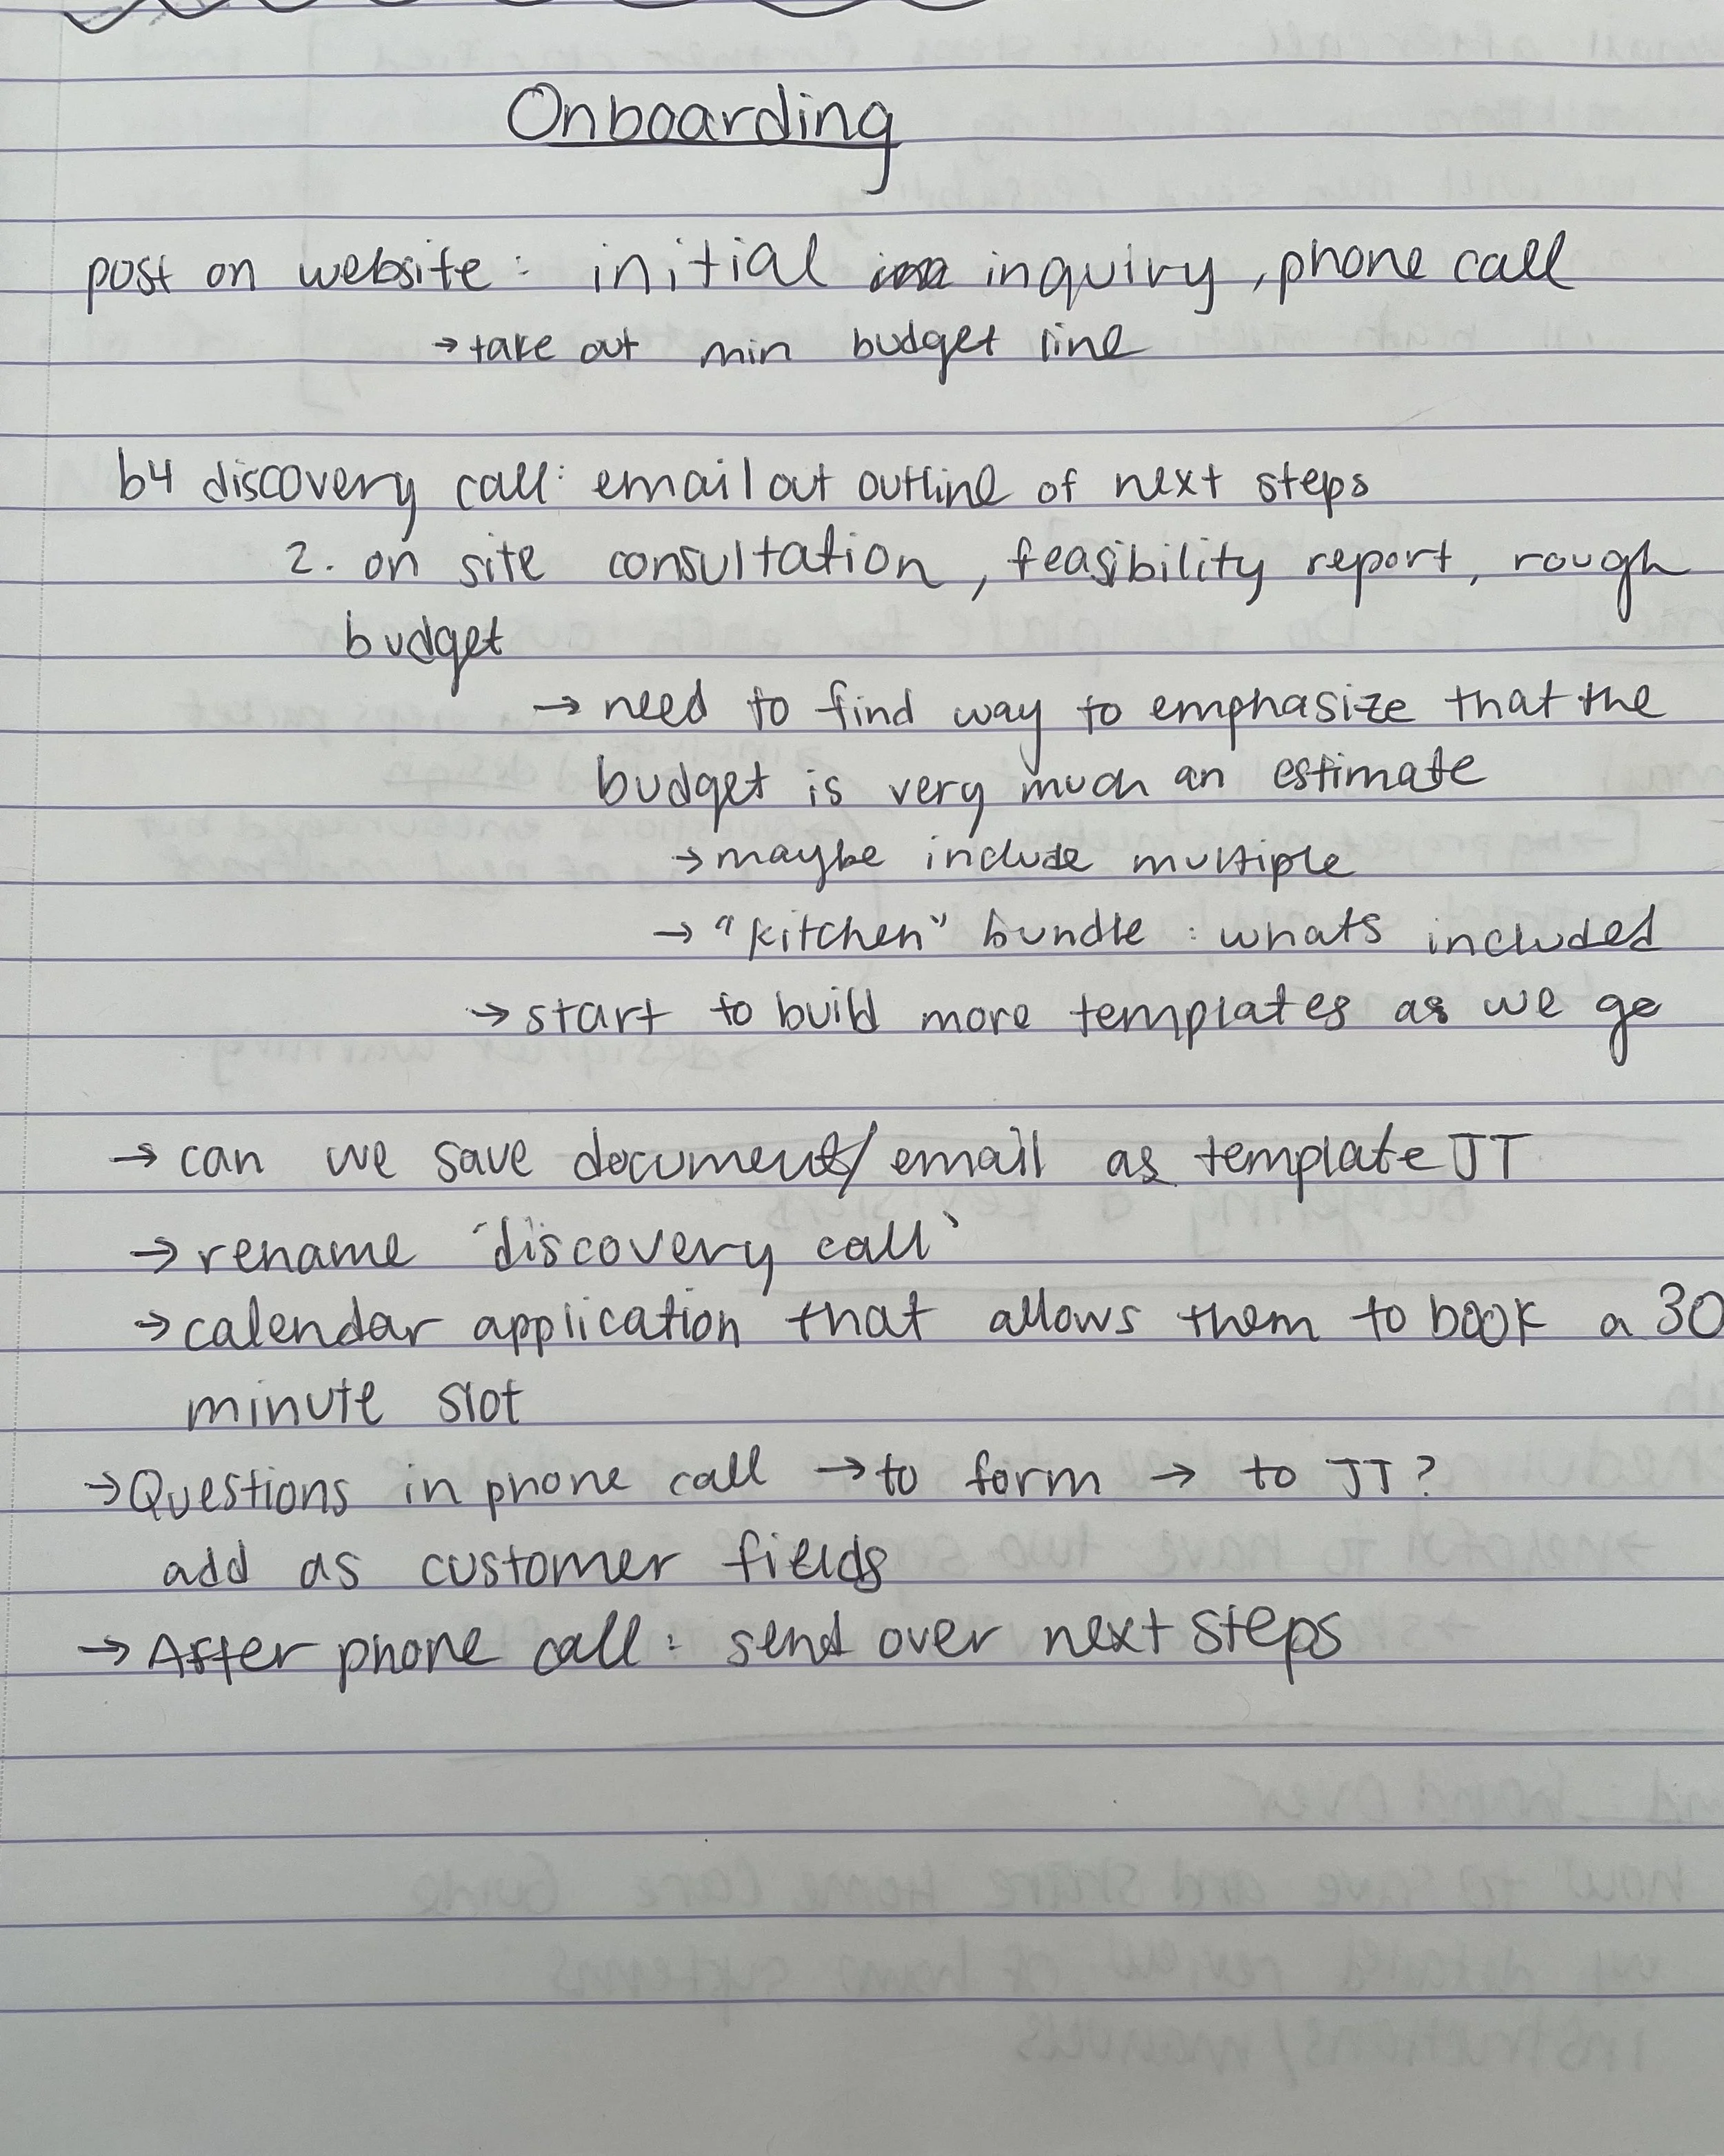 Onboarding
post on website: initial inquiry, phone call
→ take out min budget line
b4 discovery call: email out outline of next steps
2. on site consultation, feasibility report, rough
budget
→ need to find way to emphasize that the
budget is very much an estimate
→ maybe include multiple
→ "kitchen" bundle : whats included
→ start to build more templates as we go
→ can we save document/email as template JT
→ rename 'discovery call'
→ calendar application that allows them to book a 30
minute slot
→ Questions in phone call → to form → to JT?
add as customer fields
→ After phone call: send over next steps